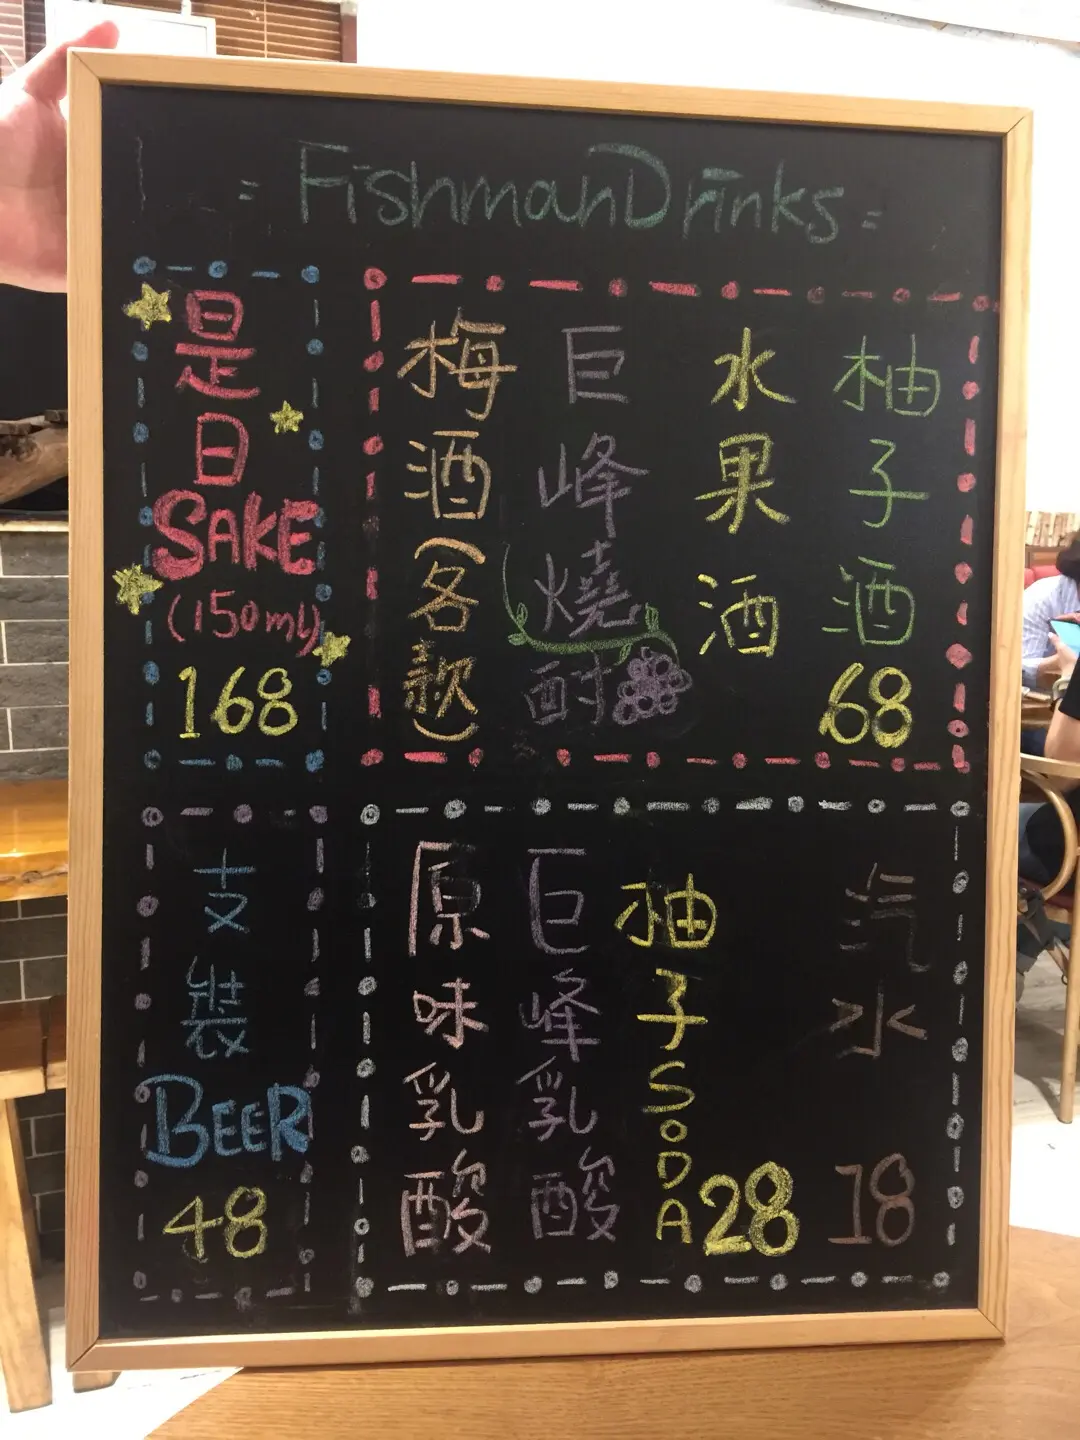 = Fishman Drinks =
是日
SAKE
(150ml)
168
梅酒(各款)
巨峰燒酎
水果酒
柚子酒
68
支裝
BEER
48
原味乳酸
巨峰乳酸
柚子SODA
28
汽水
18